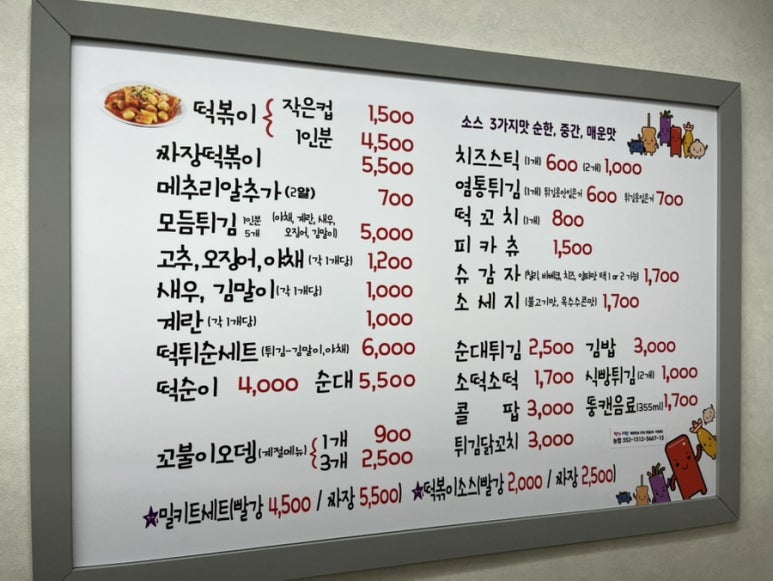 떡볶이 { 작은컵 1,500
1인분 4,500
짜장떡볶이 5,500
메추리알추가 (2알) 700
모듬튀김 1인분 5개 (야채, 계란, 새우, 오징어, 김말이) 5,000
고추, 오징어, 야채 (각 1개당) 1,200
새우, 김말이 (각 1개당) 1,000
계란 (각 1개당) 1,000
떡튀순세트 (튀김-김말이,야채) 6,000
떡순이 4,000 순대 5,500
꼬불이오뎅 (계절메뉴) { 1개 900
3개 2,500
☆밀키트세트(빨강 4,500 / 짜장 5,500)
소스 3가지맛 순한, 중간, 매운맛
치즈스틱 (1개) 600 (2개) 1,000
염통튀김 (1개) 튀김옷안입은거 600 튀김옷입은거 700
떡꼬치 (1개) 800
피카츄 1,500
슈감자 (칠리, 바베큐, 치즈, 양파맛 택 1 or 2 가능) 1,700
소세지 (불고기맛, 옥수수콘맛) 1,700
순대튀김 2,500 김밥 3,000
소떡소떡 1,700 식빵튀김 (2개) 1,000
콜팝 3,000 뚱캔음료 (355ml) 1,700
튀김닭꼬치 3,000
농협 352-1512-3667-15
☆떡볶이소스(빨강 2,000 / 짜장 2,500)